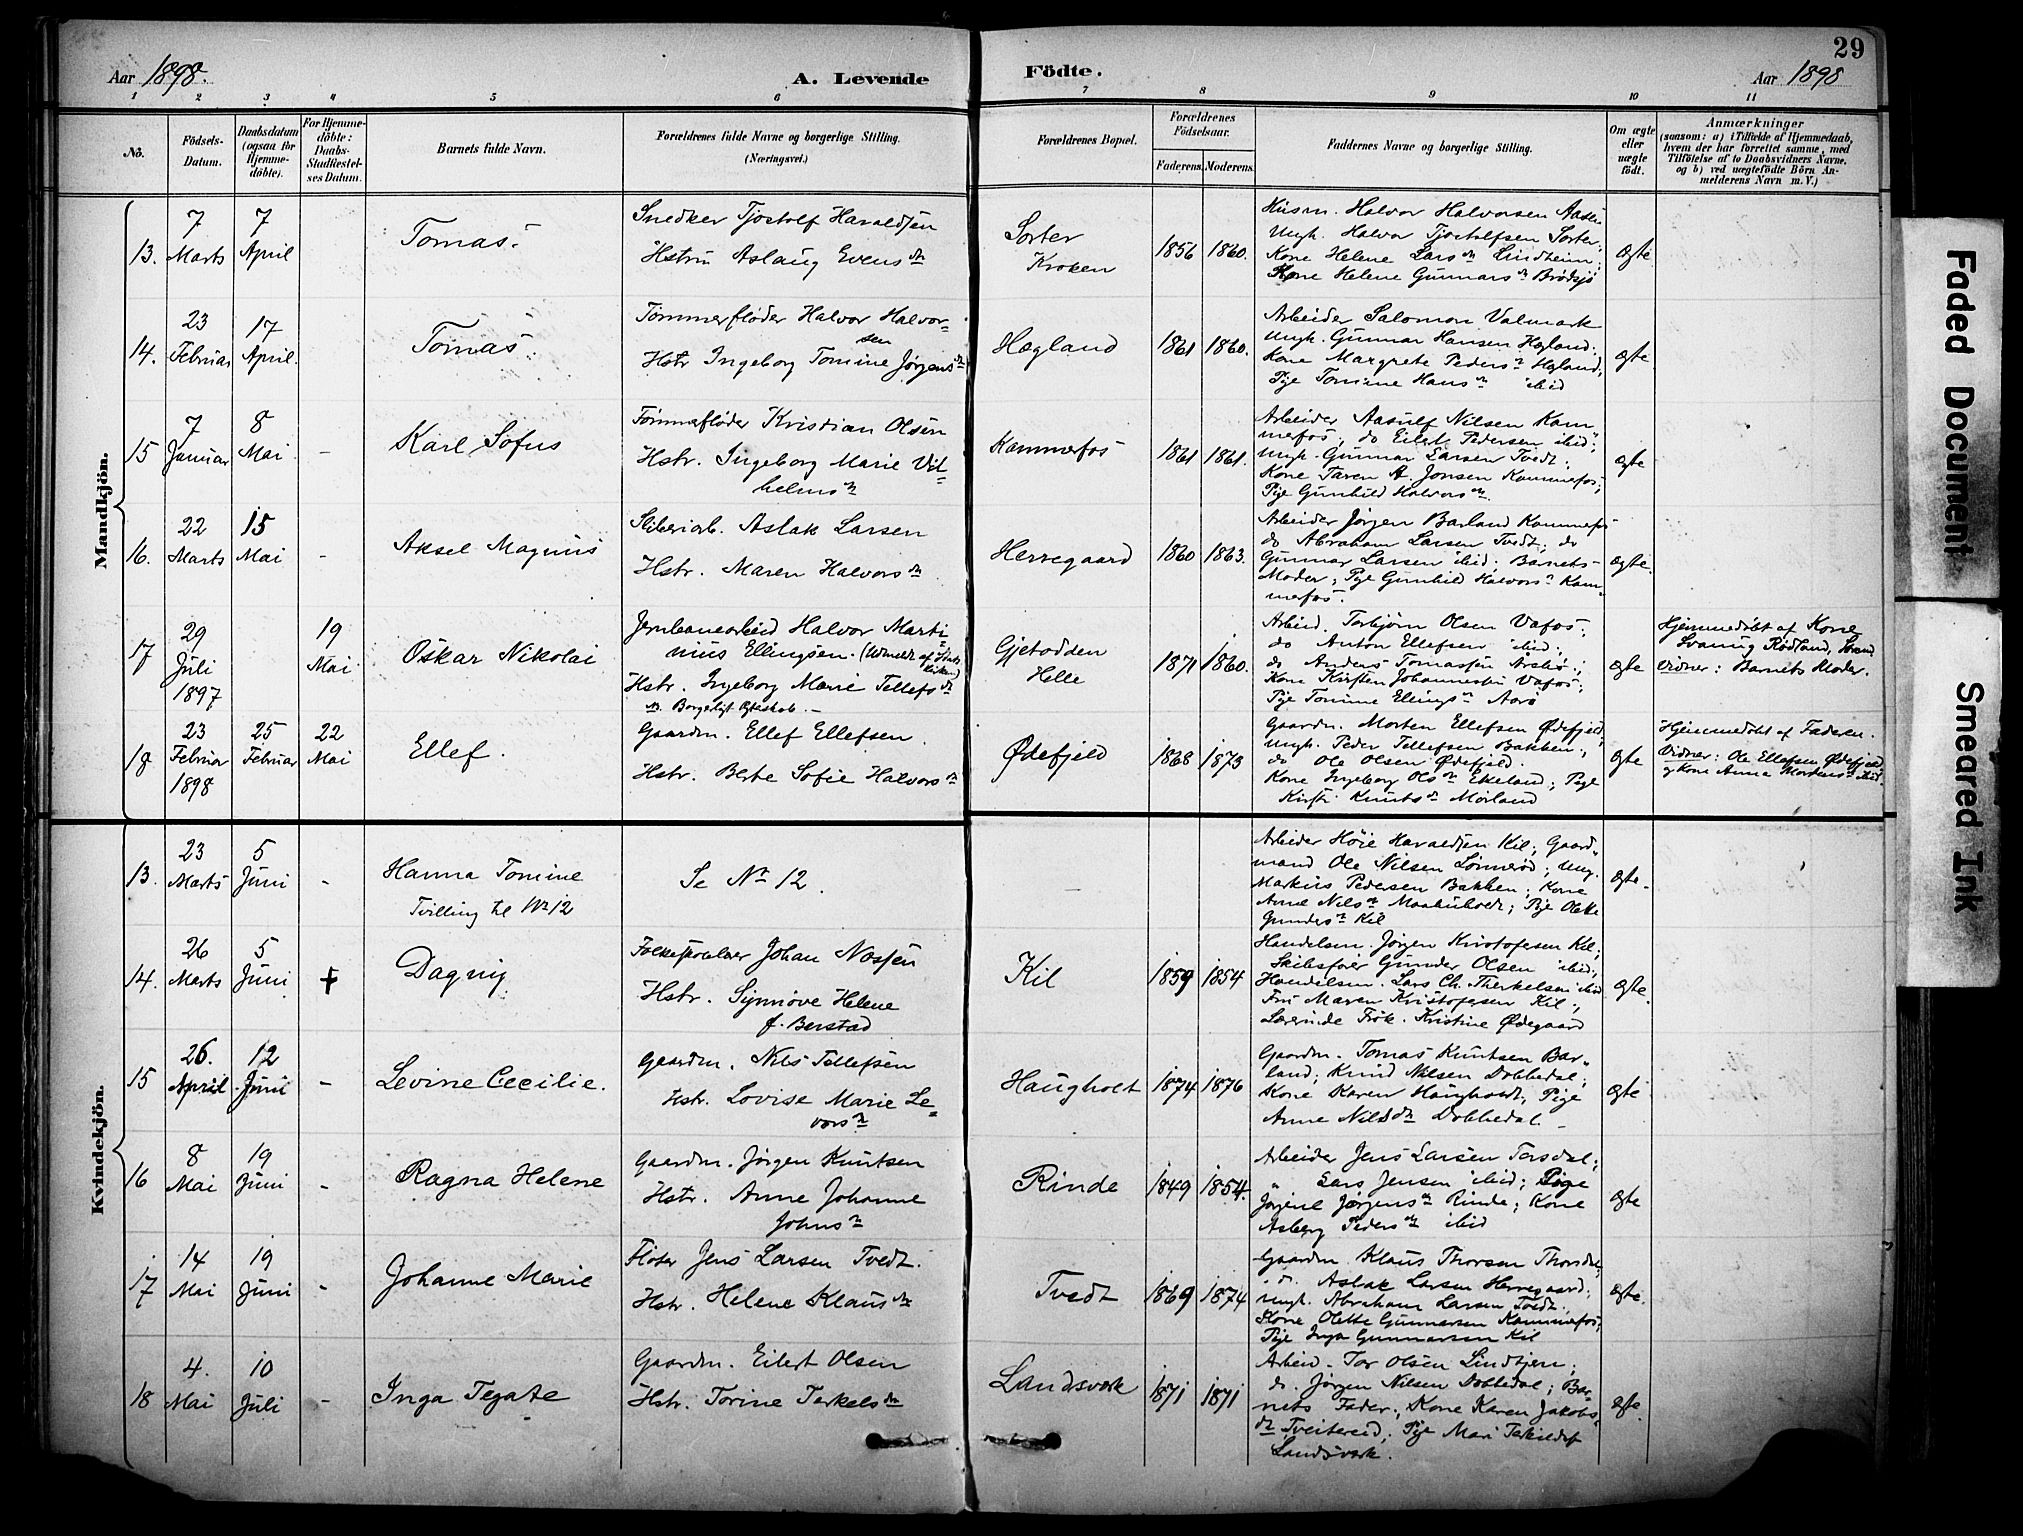 29
Aar 1898.
A. Levende
Födte.
Aar 1898
1 2 3 4 5 6 7 8 9 10 11
No.
Födsels-Datum.
Daabsdatum (ogsaa for Hjemme-döbte).
For Hjemme-döbte: Daabs-Stadfæstel-ses Datum.
Barnets fulde Navn.
Forældrenes fulde Navne og borgerlige Stilling. (Næringsvei.)
Forældrenes Bopæl.
Forældrenes Födselsaar.
Faderens. Moderens.
Faddernes Navne og borgerlige Stilling.
Om ægte eller uægte födt.
Anmærkninger
(saasom: a) i Tilfælde af Hjemmedaab,
hvem der har forrettet samme, med
Tilföielse af to Daabsvidners Navne,
og b) ved uægtefödte Börn An-
melderens Navn m. V.)
Mandkjön.
13.
7 Marts
7 April
Tomas.
Snedker Tjostolf Haraldsen
Hstru Aslaug Evens dtr
Sorter
Kroken
1856 1860.
Husm. Halvor Halvorsen Aasen
Ungk. Halvor Tjostolfsen Sorter;
Kone Helene Lars dtr Lindheim;
Kone Helene Gunnars dtr Brödsjö
Ægte
14.
23 Februar
17 April.
Tomas.
Tömmerflöder Halvor Halvor-
sen
Hstr Ingeborg Tomine Jørgens dtr
Hægland
1861 1860.
Arbeider Salomon Valmark
Ungk. Gunnar Hansen Hægland.
Kone Margrete Peders dtr Hægland;
Pige Tomine Hans dtr ibid
Ægte
15
7 Januar
8 Mai
-
Karl Sofus
Tömmerflöder Kristian Olsen
Hstr. Ingeborg Marie Vil-
helms dtr
Kammerfos
1861 1861.
Arbeider Aasulf Nilsen Kam-
merfos, do Eilert Pedersen ibid;
Ungk. Gunnar Larsen Tvedt;
Kone Taren A. Jonsen Kammerfos;
Pige Gunhild Halvors dtr
Ægte
16.
22 Marts
15 Mai
-
Aksel Magnus
Sliberiarb. Aslak Larsen
Hstr. Maren Halvors dtr
Herregaard
1860 1863.
Arbeider Jørgen Barland Kammerfos
do Abraham Larsen Tvedt; do
Gunnar Larsen ibid; Barnets-
Moder; Pige Gunhild Halvors dtr Kam-
merfos.
Ægte.
17
29 Juli 1897
19 Mai
Oskar Nikolai
Jernbanearbeid Halvor Marti-
nius Ellingsen. (Udmeldt af Stats-
kirken)
Hstr. Ingeborg Marie Tellefs dtr
Borgerligt Ægteskab. -
Gjetodden
Helle
1871 1860.
Arbeid. Torbjörn Olsen Vafos;
do Anton Ellefsen ibid;
do Anders Tomassen
Kone Kirsten Johannesen Vafos;
Pige Tomine Ellings dtr Aarö
Ægte
Hjemmedöbt af Kone
Svanug Rödland,
Vidner: Barnets Moder.
18
23 Februar 1898
25 Februar
22 Mai
Ellef.
Gaardm. Ellef Ellefsen
Hstr. Berte Sofie Halvors dtr
Ødefjeld
1868 1873
Gaardm. Morten Ellefsen Ødefjeld
Ungk. Peder Tellefsen Bakken;
do Ole Olsen Ødefjeld.
Kone Ingeborg Ols dtr Ekeland; Pige
Kirsti Knuts dtr Mörland
Ægte
Hjemmedöbt af Faderen.
Vidner: Ole Ellefsen Ødefjeld
og Kone Anna Mortens dtr ibid.
Kvindekjön.
13.
23 Marts
5 Juni
-
Hanna Tomine
Tvilling til No 12
Se No 12.
Arbeider Höie Haraldsen Kil; Gaard-
mand Ole Nilsen Lönnerød; Ung.
Markus Pedersen Bakken; Kone
Anne Nils dtr; Pige Olette
Gunders dtr Kil
Ægte.
14.
26 Marts
5 Juni
Dagny
Folkeskolelærer Johan Nossen
Hstr. Synnöve Helene
f. Berstad
Kil
1859 1854
Handelsm. Jörgen Kristofersen Kil;
Skibsförer Gunder Olsen ibid;
Handelsm. Lars Ch. Therkelsen ibid
Fru Maren Kristofersen Kil;
Lærerinde Frök. Kristine Ødegaard
Ægte.
15
26. April.
12 Juni
-
Levine Cecilie.
Gaardm. Nils Tellefsen
Hstr. Lovise Marie Le-
vors dtr
Haugholt
1874 1876
Gaardm. Tomas Knutsen Bar-
land; Knud Nilsen Dobbedal;
Kone Karen Haugholt; Pige
Anne Nils dtr Dobbedal
Ægte
16
8 Mai
19 Juni
-
Ragna Helene
Gaardm. Jörgen Knutsen
Hstr. Anne Johanne
Johns dtr
Rinde
1849 1854.
Arbeider Jens Larsen Torsdal;
" Lars Jensen ibid; Pige
Jörgine Jörgens dtr Rinde; Kone
Asberg Peders dtr ibid
Ægte
17
14 Mai
19 Juni
-
Johanne Marie
Flöter Jens Larsen Tvedt.
Hstr. Helene Klaus dtr
Tvedt
1869 1874
Gaardm Klaus Thorsen Thorsdal;
do. Aslak Larsen Herregaard;
Ungk. Abraham Larsen Tvedt.
Kone Olette Gunnarsen Kammerfos;
Pige Inga Gunnarsen Kil
Ægte.
18
4. Mai
10 Juli
-
Inga Tegate
Gaardm. Eilert Olsen
Hstr. Torine Terkels dtr
Landsverk
1871 1871
Arbeid. Tor Olsen Lindtjern;
do. Jörgen Nilsen Dobbedal; Bar-
nets Fader; Kone Karen Jakobs
dtr Tveitereid; Pige Mari
Landsverk.
Ægte.
Faded Document
Smeared Ink